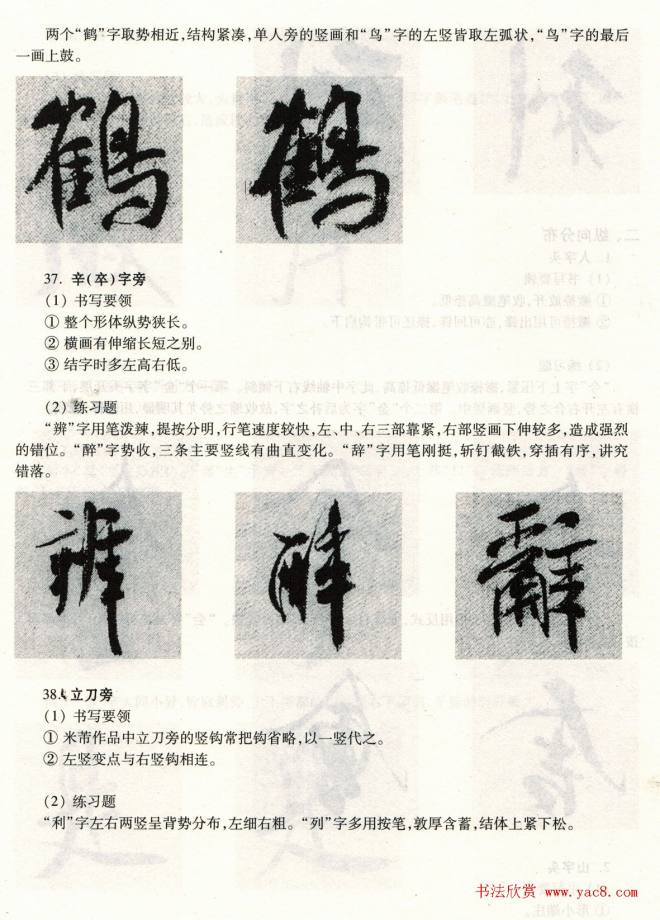 两个“鹤”字取势相近，结构紧凑，单人旁的竖画和“鸟”字的左竖皆取左弧状，“鸟”字的最后
一画上鼓。
鹤 鹤
37. 辛(卒)字旁
(1) 书写要领
① 整个形体纵势狭长。
② 横画有伸缩长短之别。
③ 结字时多左高右低。
(2) 练习题
“辨”字用笔泼辣，提按分明，行笔速度较快，左、中、右三部靠紧，右部竖画下伸较多，造成强烈
的错位。“醉”字势收，三条主要竖线有曲直变化。“辞”字用笔刚挺，斩钉截铁，穿插有序，讲究
错落。
辨 醉 辭
38. 立刀旁
(1) 书写要领
① 米芾作品中立刀旁的竖钩常把钩省略，以一竖代之。
② 左竖变点与右竖钩相连。
(2) 练习题
“利”字左右两竖呈背势分布，左细右粗。“列”字多用按笔，敦厚含蓄，结体上紧下松。
书法欣赏 www.yac8.com